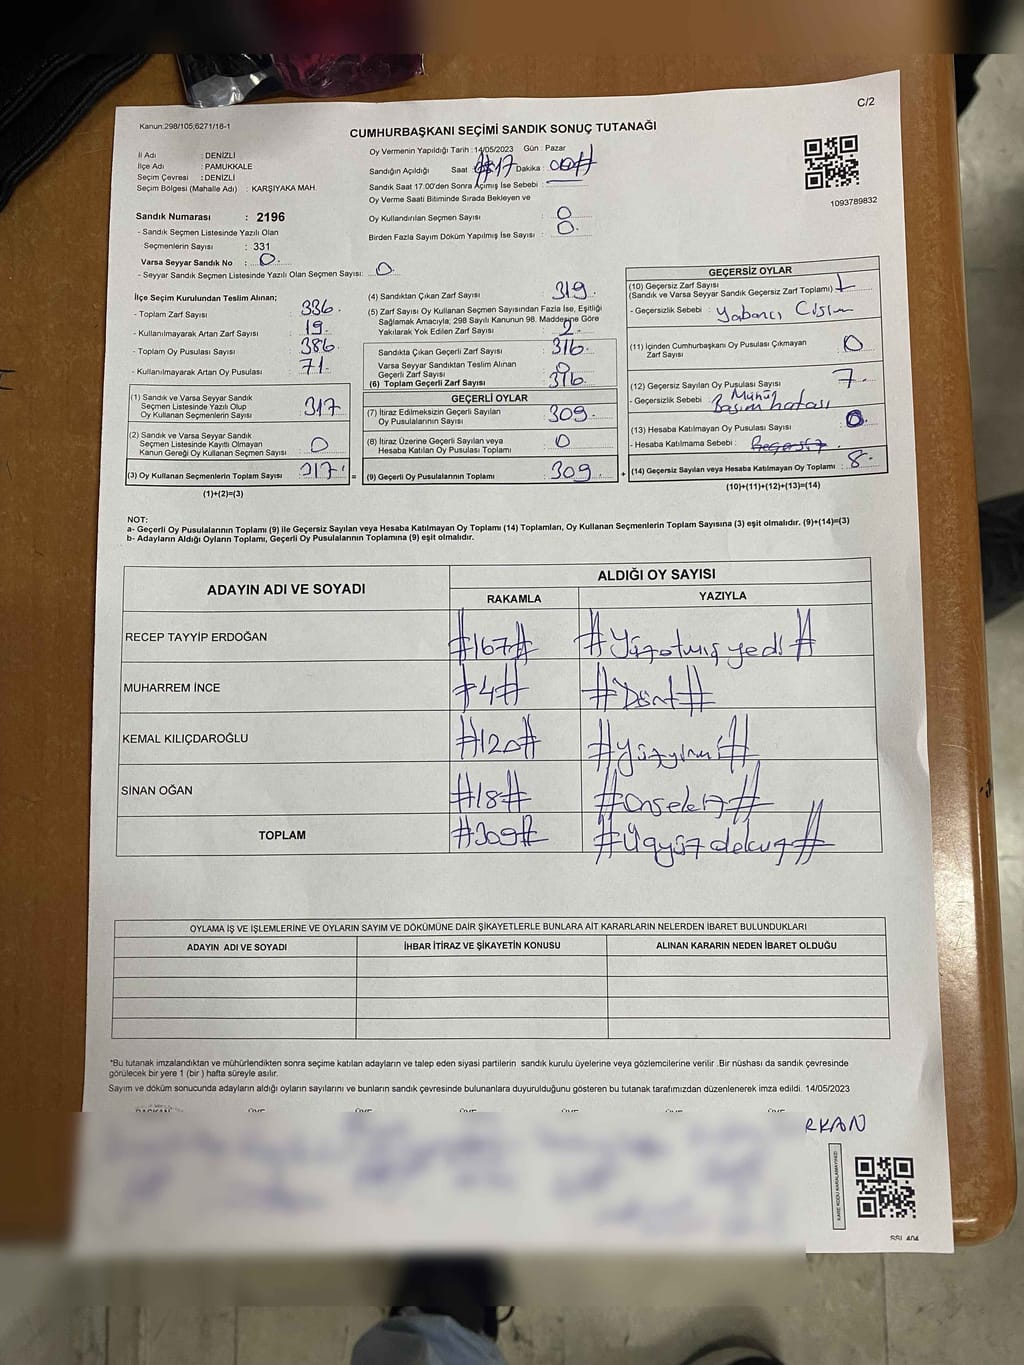 C/2
Kanun:298/105;6271/16-1
CUMHURBAŞKANI SEÇİMİ SANDIK SONUÇ TUTANAĞI
İl Adı : DENİZLİ
İlçe Adı : PAMUKKALE
Seçim Çevresi : DENİZLİ
Seçim Bölgesi (Mahalle Adı) : KARŞIYAKA MAH.
Oy Vermenin Yapıldığı Tarih : 14/05/2023 Gün : Pazar
Sandığın Açıldığı Saat 17 Dakika : 00#
Sandık Saat 17.00'den Sonra Açılmış İse Sebebi :
Oy Verme Saati Bitiminde Sırada Bekleyen ve
Oy Kullandırılan Seçmen Sayısı : 0
Birden Fazla Sayım Döküm Yapılmış İse Sayısı : 0
1093789832
Sandık Numarası : 2196
- Sandık Seçmen Listesinde Yazılı Olan
Seçmenlerin Sayısı : 331
Varsa Seyyar Sandık No : 0
- Seyyar Sandık Seçmen Listesinde Yazılı Olan Seçmen Sayısı: 0
İlçe Seçim Kurulundan Teslim Alınan;
- Toplam Zarf Sayısı : 336
- Kullanılmayarak Artan Zarf Sayısı : 19
- Toplam Oy Pusulası Sayısı : 386
- Kullanılmayarak Artan Oy Pusulası : 71
(1) Sandık ve Varsa Seyyar Sandık
Seçmen Listesinde Yazılı Olup
Oy Kullanan Seçmenlerin Sayısı : 317
(2) Sandık ve Varsa Seyyar Sandık
Seçmen Listesinde Kayıtlı Olmayan
Kanun Gereği Oy Kullanan Seçmen Sayısı : 0
(3) Oy Kullanan Seçmenlerin Toplam Sayısı : 317
(1)+(2)=(3)
(4) Sandıktan Çıkan Zarf Sayısı : 319
(5) Zarf Sayısı Oy Kullanan Seçmen Sayısından Fazla İse, Eşitliği
Sağlamak Amacıyla; 298 Sayılı Kanunun 98. Maddesine Göre
Yakılarak Yok Edilen Zarf Sayısı : 2
Sandıkta Çıkan Geçerli Zarf Sayısı : 316
Varsa Seyyar Sandıktan Teslim Alınan
Geçerli Zarf Sayısı : 0
(6) Toplam Geçerli Zarf Sayısı : 316
GEÇERLİ OYLAR
(7) İtiraz Edilmeksizin Geçerli Sayılan
Oy Pusulalarının Sayısı : 309
(8) İtiraz Üzerine Geçerli Sayılan veya
Hesaba Katılan Oy Pusulası Toplamı : 0
(9) Geçerli Oy Pusulalarının Toplamı : 309
GEÇERSİZ OYLAR
(10) Geçersiz Zarf Sayısı
(Sandık ve Varsa Seyyar Sandık Geçersiz Zarf Toplamı) : 1
- Geçersizlik Sebebi : Yabancı Cisim
(11) İçinden Cumhurbaşkanı Oy Pusulası Çıkmayan
Zarf Sayısı : 0
(12) Geçersiz Sayılan Oy Pusulası Sayısı : 7
- Geçersizlik Sebebi : Mühür
Basım hatası
(13) Hesaba Katılmayan Oy Pusulası Sayısı : 0
- Hesaba Katılmama Sebebi :
(14) Geçersiz Sayılan veya Hesaba Katılmayan Oy Toplamı : 8
(10)+(11)+(12)+(13)=(14)
NOT:
a- Geçerli Oy Pusulalarının Toplamı (9) ile Geçersiz Sayılan veya Hesaba Katılmayan Oy Toplamı (14) Toplamları, Oy Kullanan Seçmenlerin Toplam Sayısına (3) eşit olmalıdır. (9)+(14)=(3)
b- Adayların Aldığı Oyların Toplamı, Geçerli Oy Pusulalarının Toplamına (9) eşit olmalıdır.
ADAYIN ADI VE SOYADI ALDIĞI OY SAYISI
RAKAMLA YAZIYLA
RECEP TAYYİP ERDOĞAN #167# #Yüzatmış yedi#
MUHARREM İNCE #4# #Dört#
KEMAL KILIÇDAROĞLU #120# #Yüzyirmi#
SİNAN OĞAN #18# #Onsekiz#
TOPLAM #309# #Üçyüz dokuz#
OYLAMA İŞ VE İŞLEMLERİNE VE OYLARIN SAYIM VE DÖKÜMÜNE DAİR ŞİKAYETLERLE BUNLARA AİT KARARLARIN NELERDEN İBARET BULUNDUKLARI
ADAYIN ADI VE SOYADI İHBAR İTİRAZ VE ŞİKAYETİN KONUSU ALINAN KARARIN NEDEN İBARET OLDUĞU
*Bu tutanak imzalandıktan ve mühürlendikten sonra seçime katılan adayların ve talep eden siyasi partilerin sandık kurulu üyelerine veya gözlemcilerine verilir .Bir nüshası da sandık çevresinde
görülecek bir yere 1 (bir ) hafta süreyle asılır.
Sayım ve döküm sonucunda adayların aldığı oyların sayılarını ve bunların sandık çevresinde bulunanlara duyurulduğunu gösteren bu tutanak tarafımızdan düzenlenerek imza edildi. 14/05/2023
RKAN
KARE KODU KARALAMAYINIZ!